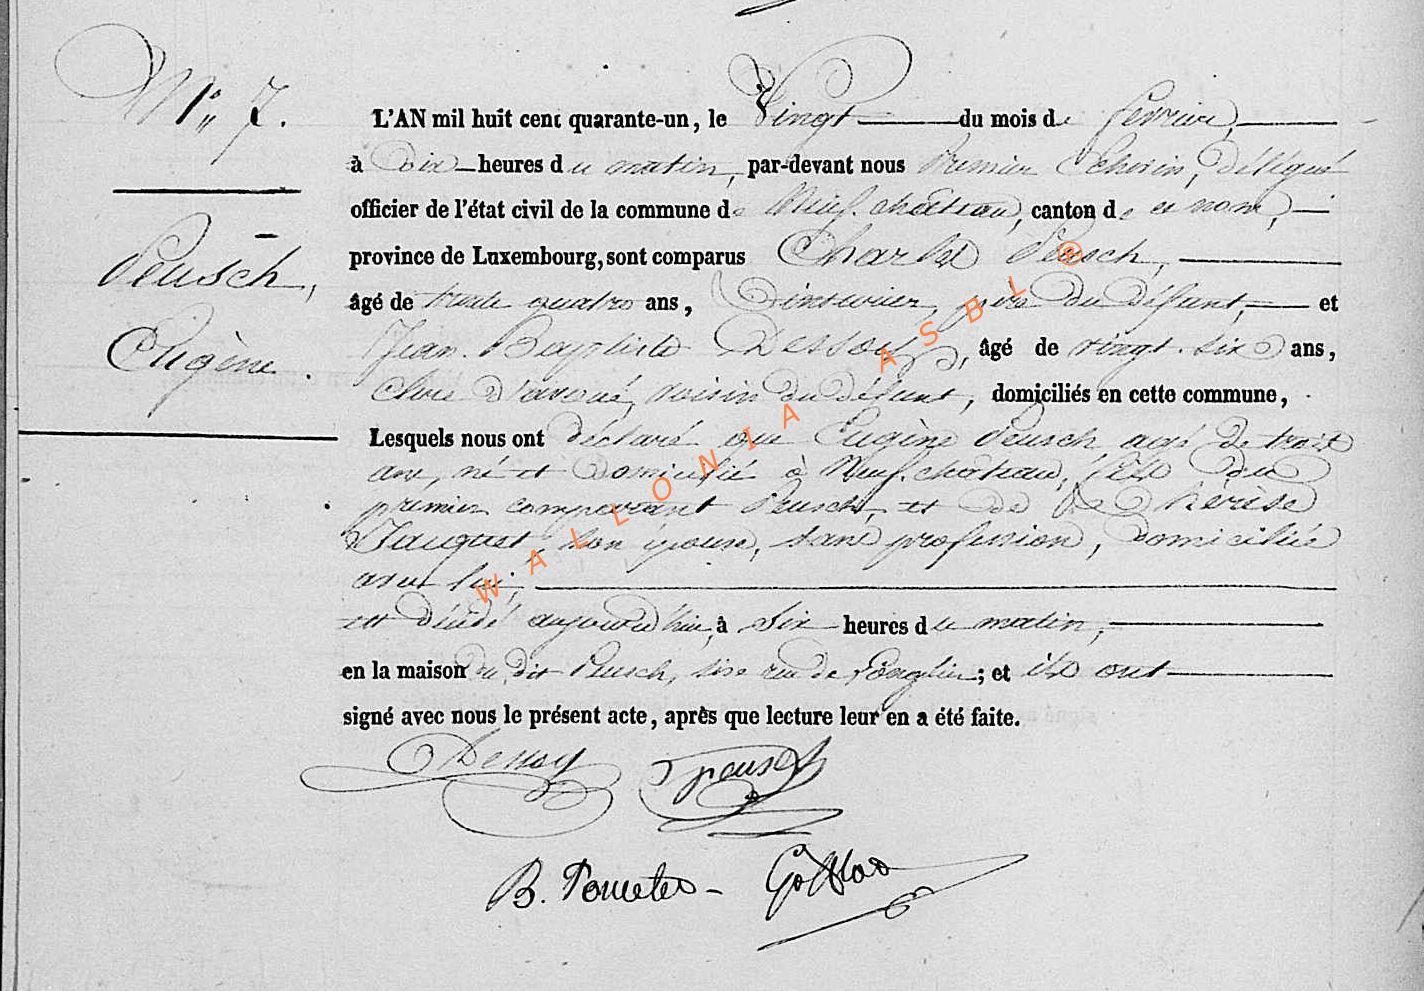 N° 7.
Peusch,
Eugène.
L'AN mil huit cent quarante-un, le Vingt du mois de février,
à Dix heures du matin, par-devant nous Premier Echevin, délégué
officier de l'état civil de la commune de Neufchâteau, canton de ce nom,
province de Luxembourg, sont comparus Charles Peusch,
âgé de trente quatre ans, père du défunt, et
Jean-Baptiste Dessoy, âgé de vingt-six ans,
clerc d'avoué, voisin du défunt, domiciliés en cette commune,
Lesquels nous ont déclaré que Eugène Peusch, agé de trois
ans, né et domicilié à Neufchâteau, fils du
premier comparant Peusch, et de Thérèse
Jauquet, son épouse, sans profession, domiciliée
avec lui;
est décédé aujourd'hui, à six heures du matin,
en la maison du dit Peusch, sise rue de Longlier; et ils ont
signé avec nous le présent acte, après que lecture leur en a été faite.
Dessoy peusch
B.
WALLONIA ASBL ®